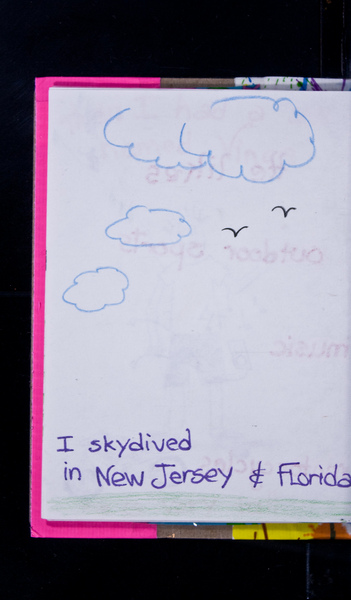 I skydived
in New Jersey & Florida